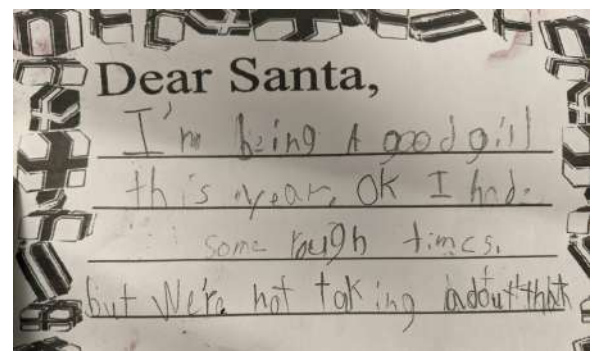 Dear Santa,
I'm being A good gill
this year, OK I had.
some rough times.
but We're not taking adout that